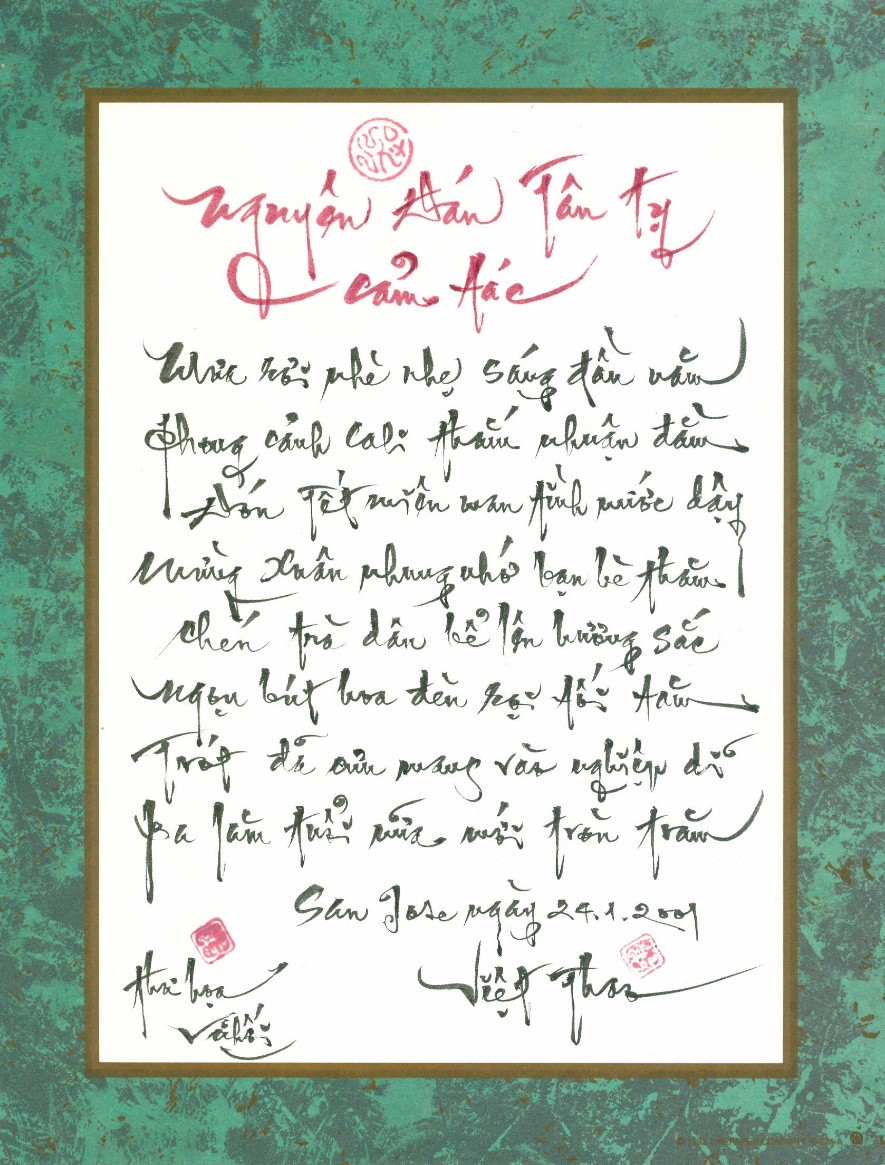 Nguyên Đán Tân Tỵ
cảm tác
Mưa rơi nhè nhẹ sáng đầu năm
Phong cảnh Cali thắm nhuận đầm
Đón Tết miên man tình nước dậy
Mừng Xuân nhung nhớ bạn bè thăm
Chén trà dâu bể lên hương sắc
Ngọn bút hoa đèn rọi tối tăm
Trót đã cưu mang vào nghiệp dĩ
Ba lăm tuổi nữa mới tròn trăm
San Jose ngày 24.1.2001
thư họa
Vũ Hối
Việt Thao